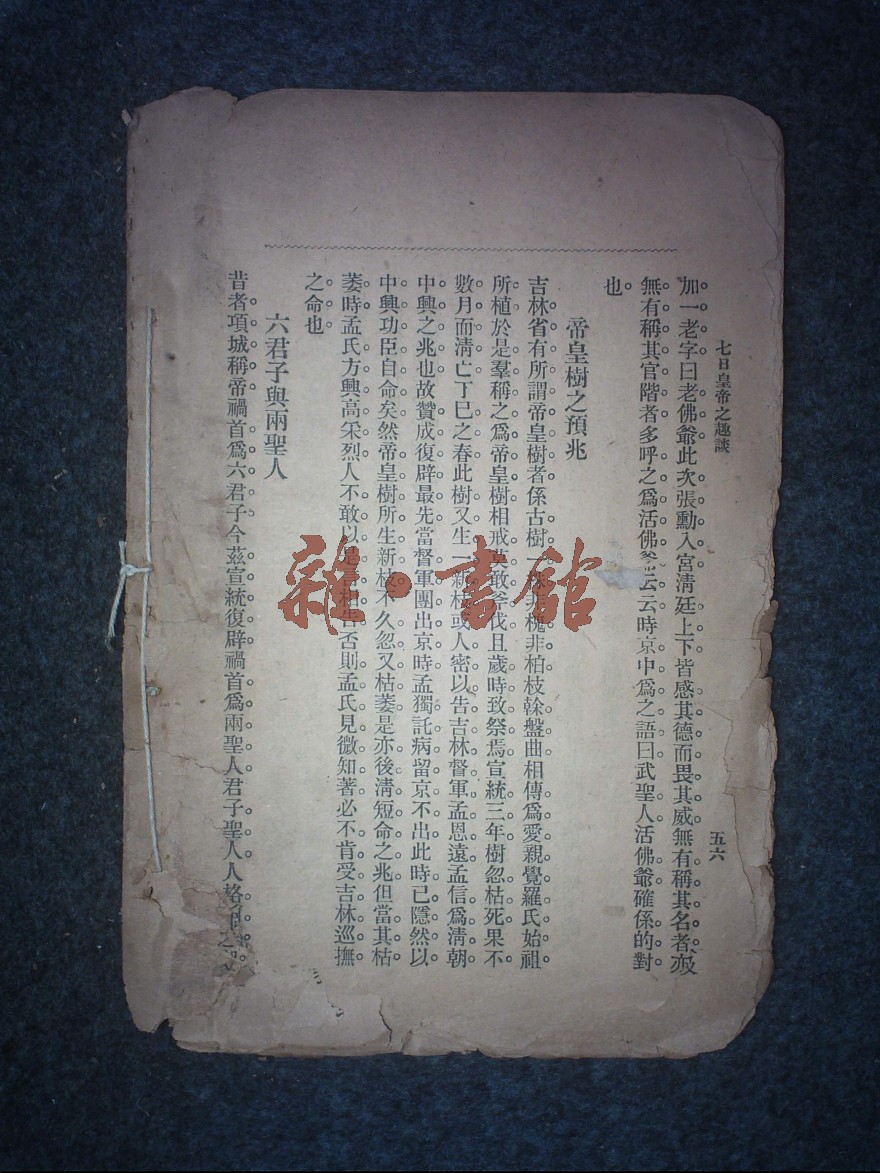 七日皇帝之趣談
五六
加一老字曰老佛爺此次張勳入宮淸廷上下皆感其德而畏其威無有稱其名者亦
無有稱其官階者多呼之爲活佛爺云云時京中爲之語曰武聖人活佛爺確係的對
也。
帝皇樹之預兆
吉林省有所謂帝皇樹者係古樹一株非槐非柏枝榦盤曲相傳爲愛親覺羅氏始祖
所植於是羣稱之爲帝皇樹相戒莫敢斧伐且歲時致祭焉宣統三年樹忽枯死果不
數月而淸亡丁巳之春此樹又生一新枝或人密以告吉林督軍孟恩遠孟信爲淸朝
中興之兆也故贊成復辟最先當督軍團出京時孟獨託病留京不出此時已隱然以
中興功臣自命矣然帝皇樹所生新枝不久忽又枯萎是亦後淸短命之兆但當其枯
萎時孟氏方興高采烈人不敢以是相告否則孟氏見微知著必不肯受吉林巡撫
之命也。
六君子與兩聖人
昔者項城稱帝禍首爲六君子今茲宣統復辟禍首爲兩聖人君子聖人人格
雜·書館